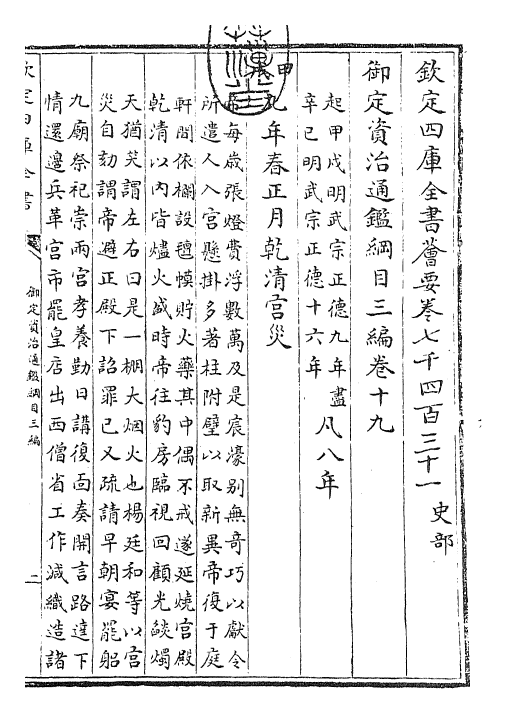 欽定四庫全書薈要卷七千四百三十一 史部
御定資治通鑑綱目三編卷十九
起甲戌明武宗正德九年盡
辛巳明武宗正德十六年
凡八年
甲
九年春正月乾清宫災
帝每歲張燈費浮數萬及是宸濠别無奇巧以獻令
所遣人入宫懸掛多著柱附璧以取新異帝復于庭
軒間依欄設氊幙貯火藥其中偶不戒遂延燒宫殿
乾清以内皆燼火盛時帝往豹房臨視回顧光燄燭
天猶笑謂左右曰是一棚大烟火也楊廷和等以宫
災自劾謂帝避正殿下詔罪已又疏請早朝宴罷躬
九廟祭祀崇兩宫孝養勤日講復面奏開言路達下
情還邊兵革宫市罷皇店出西僧省工作減織造諸
欽定四庫全書
御定資治通鑑綱目三編
二